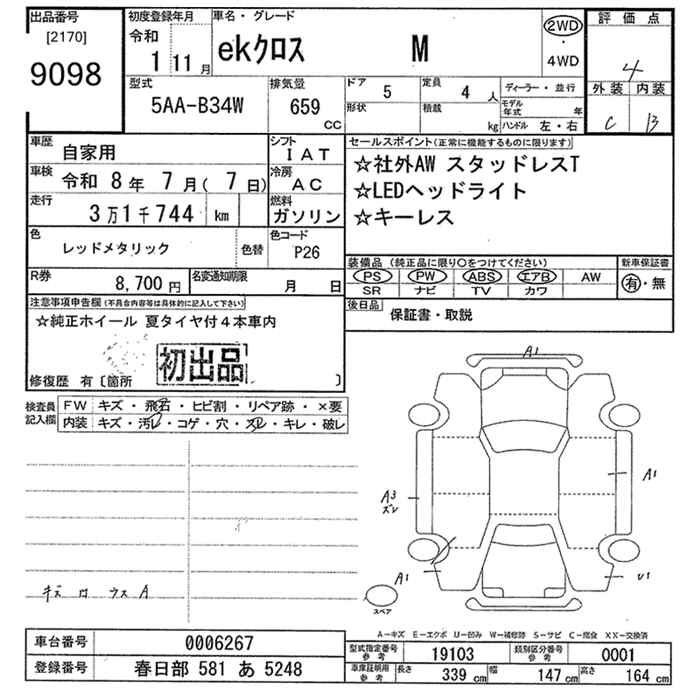 出品番号
[2170]
9098
初度登録年月
令和
1 11 月
車名・グレード
ekクロス M
2WD
・
4WD
評価点
4
外装 内装
C B
型式
5AA-B34W
排気量
659
CC
ドア 5
形状
定員 4 人
積載 kg
ディーラー・並行
モデル年式 年
ハンドル 左・右
車歴
自家用
シフト
IAT
車検 令和 8 年 7 月( 7 日)
冷房
AC
走行
3万1千744 km
燃料
ガソリン
色
レッドメタリック
色替
色コード
P26
R券
8,700 円
名変通知期限
月 日
セールスポイント(正常に機能するものに限ります)
☆社外AW スタッドレスT
☆LEDヘッドライト
☆キーレス
装備品 (純正品に限り○をつけてください)
PS PW ABS エアB AW
SR ナビ TV カワ
新車保証書
有・無
後日品
保証書・取説
注意事項申告欄(不具合内容等は具体的に記入して下さい)
☆純正ホイール 夏タイヤ付4本車内
初出品
修復歴 有〔箇所 〕
検査員記入欄
FW キズ・飛石・ヒビ割・リペア跡・×要
内装 キズ・汚レ・コゲ・穴・スレ・キレ・破レ
A1
A1
A3
ズレ
A1
U1
スペア
A-キズ E-エクボ U-凹み W-補修跡 S-サビ C-腐食 XX-交換済
車台番号 0006267
登録番号 春日部 581 あ 5248
型式指定番号
参考
19103
類別区分番号
参考
0001
車庫証明用
参考
長さ 339 cm 幅 147 cm 高さ 164 cm